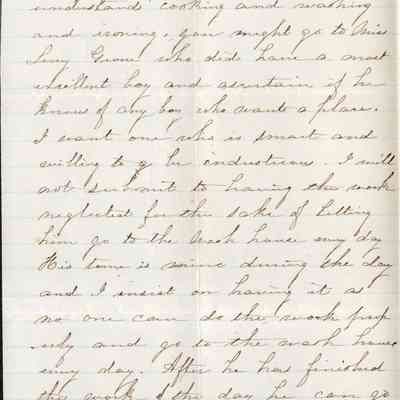 understands cooking and washing
and ironing, you might go to Miss
Lucy who did have a most
excellent boy and ascertain if he
knows of any boy who wants a place.
I want one who is smart and
willing to be industrious. I will
not submit to having the work
neglected for the sake of letting
him go to the wash house any day
His time is mine during the day
and I insist on having it as
no one can do the work prop
-erly and go to the wash house
any day. After he has finished
the work of the day he can go